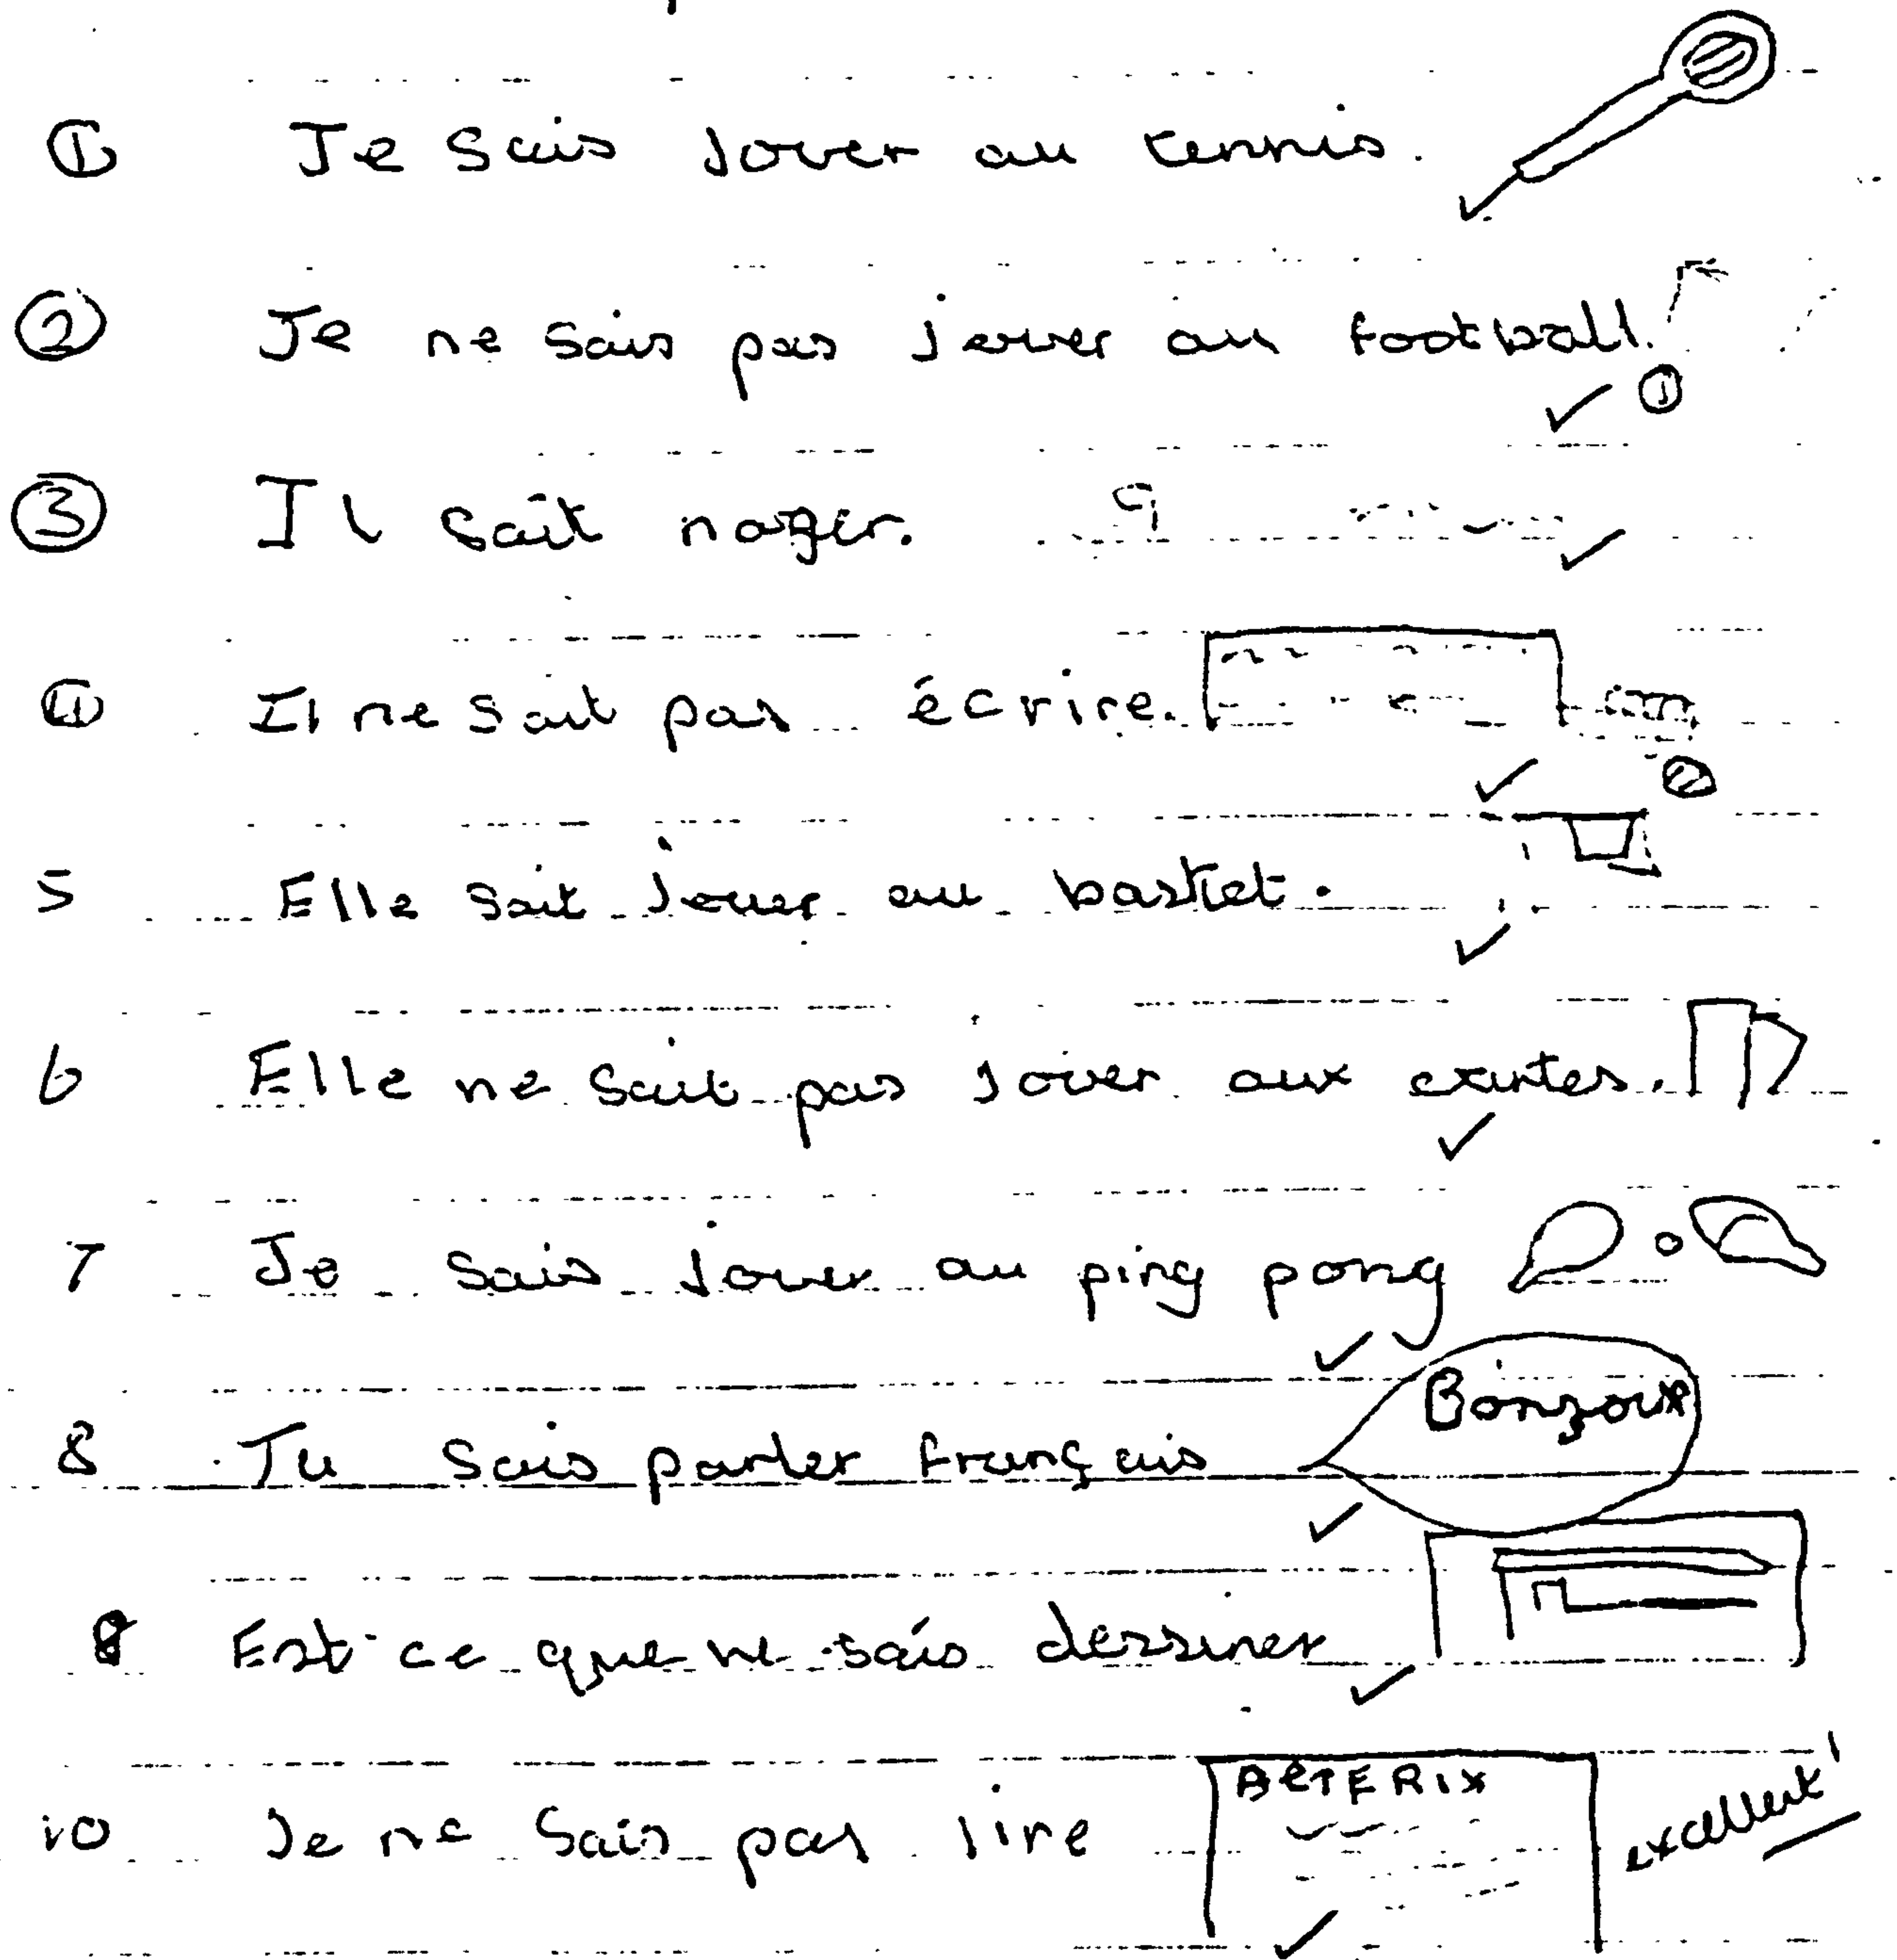 ① Je sais jouer au tennis.
② Je ne sais pas jouer au football.
①
③ Il sait nager.
④ Il ne sait pas écrire.
②
5 Elle sait jouer au basket.
6 Elle ne sait pas jouer aux cartes.
7 Je sais jouer au ping pong
Bonjour
8 Tu sais parler français
Est-ce que tu sais dessiner
ASTERIX
10 Je ne sais pas lire
excellent!